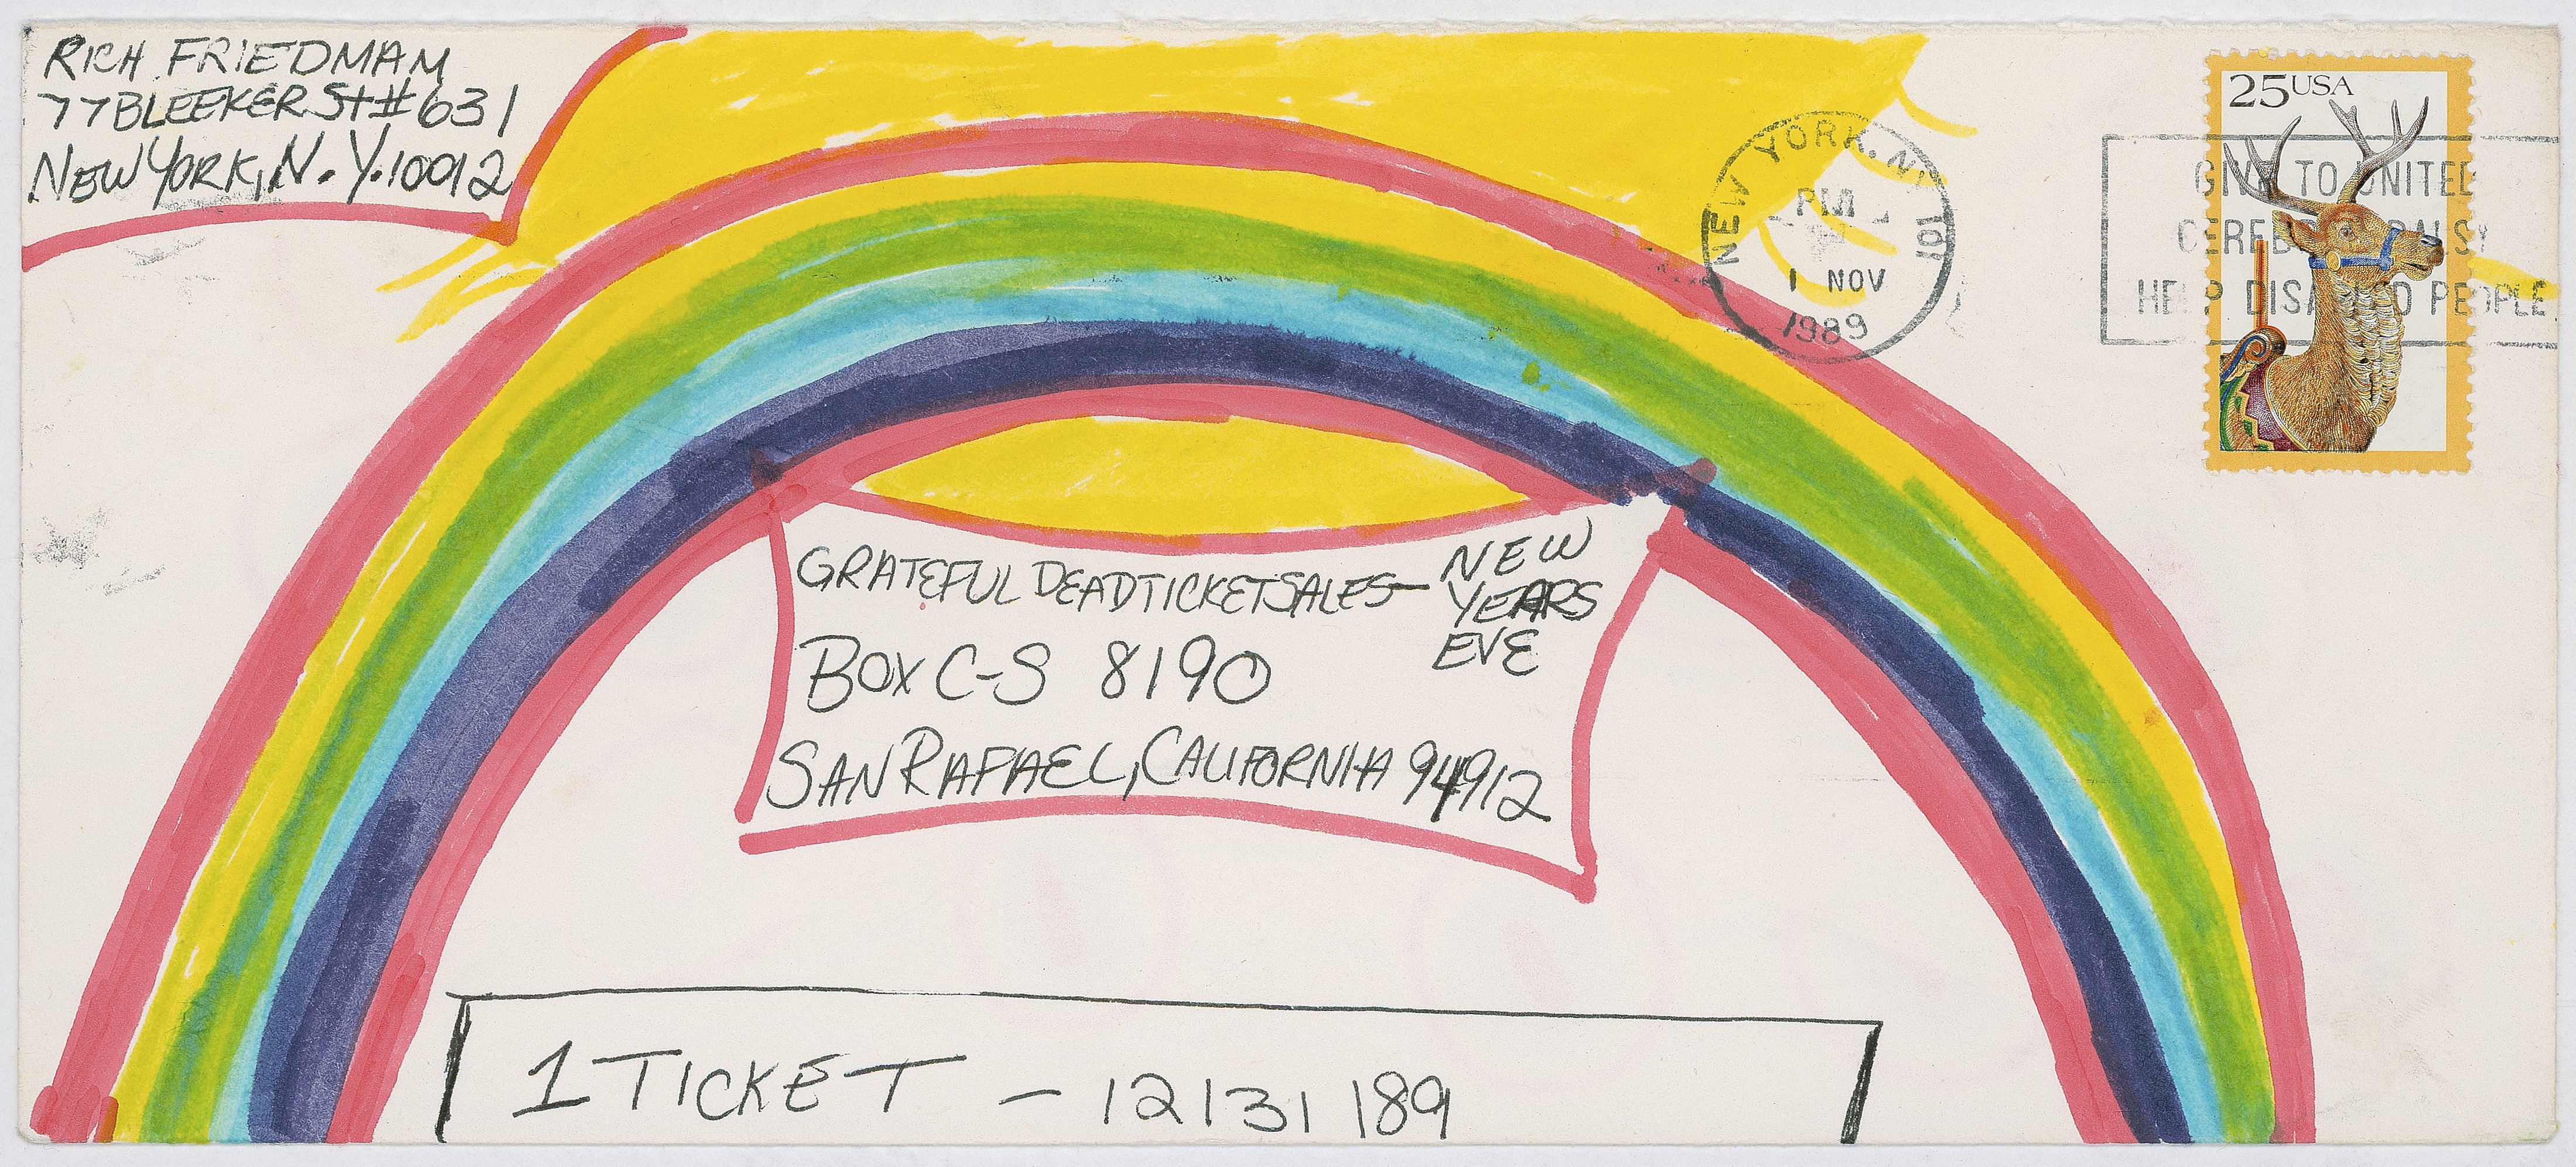 RICH FRIEDMAN
77 BLEEKER St #631
NEW YORK, N.Y. 10012
25 USA
NEW YORK, NY 101
PM
1 NOV
1989
GIVE TO UNITED
CEREBRAL PALSY
HELP DISABLED PEOPLE
GRATEFUL DEAD TICKET SALES — NEW
YEARS
EVE
BOX C-S 8190
SAN RAFAEL, CALIFORNIA 94912
1 TICKET — 12/31/89